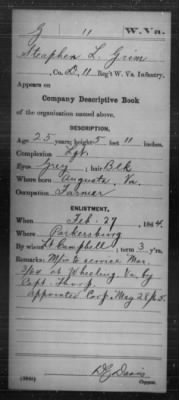 G 11 W. Va.
Steaphen L. Grim
, Co. D, 11 Reg't W. Va. Infantry.
Appears on
Company Descriptive Book
of the organization named above.
DESCRIPTION.
Age 25 years; height 5 feet 11 inches.
Complexion Lgt.
Eyes Grey ; hair Blk
Where born Augusta, Va.
Occupation Farmer
ENLISTMENT.
When Feb. 27, 1864.
Where Parkersburg
By whom Lt. Campbell ; term 3 y'rs.
Remarks: M/in to service Mar.
3/64 at Wheeling Va. by
Capt. Thorp.
Appointed Corp. May 28/65.
D.G. Davis
Copyist.